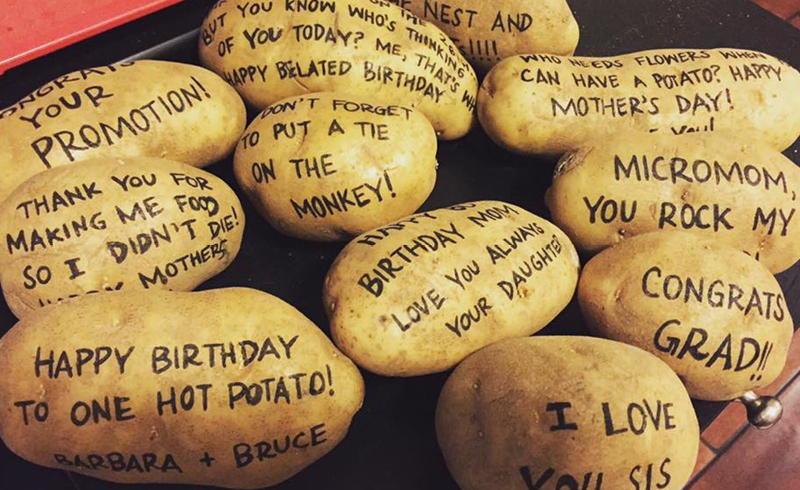 NEST AND
BUT YOU KNOW WHO'S THINKING
OF YOU TODAY? ME, THAT'S
HAPPY BELATED BIRTHDAY
WHO NEEDS FLOWERS WHEN
CAN HAVE A POTATO? HAPPY
MOTHER'S DAY!
YOU!
CONGRATS
YOUR
PROMOTION!
DON'T FORGET
TO PUT A TIE
ON THE
MONKEY!
MICROMOM,
YOU ROCK MY
THANK YOU FOR
MAKING ME FOOD
SO I DIDN'T DIE!
HAPPY MOTHERS
HAPPY
BIRTHDAY MOM
LOVE YOU ALWAYS
YOUR DAUGHTER
CONGRATS
GRAD!!
HAPPY BIRTHDAY
TO ONE HOT POTATO!
BARBARA + BRUCE
I LOVE
YOU SIS